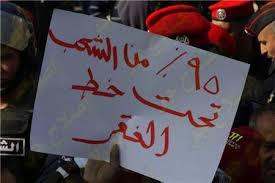 ٩٥٪ من الشعب
تحت خط
الفقر